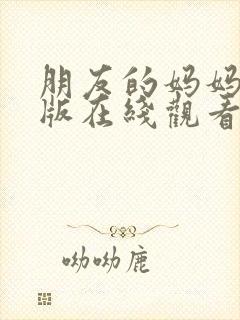 朋友的妈妈
版在綫觀看
呦呦鹿